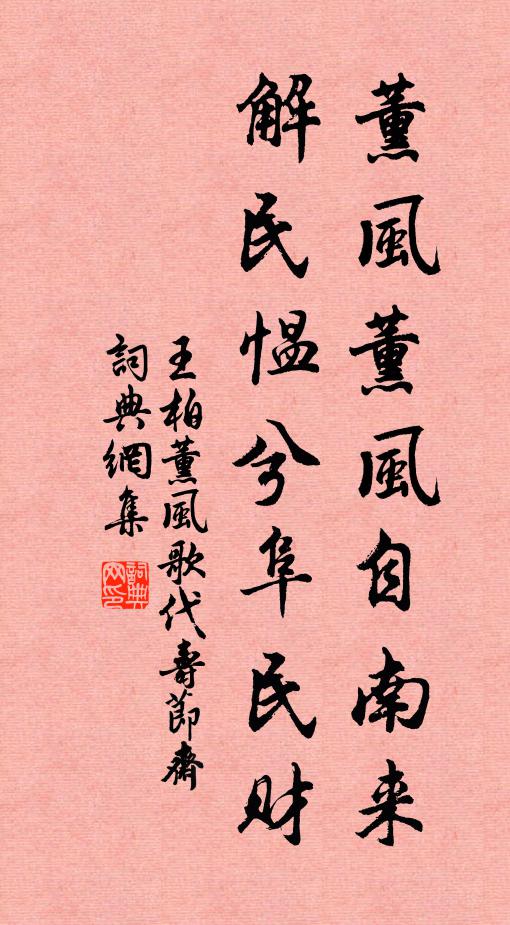 薰風薰風自南来
解民愠兮阜民财
王柏薰風歌代壽節齋
詞典網集
詞典網印